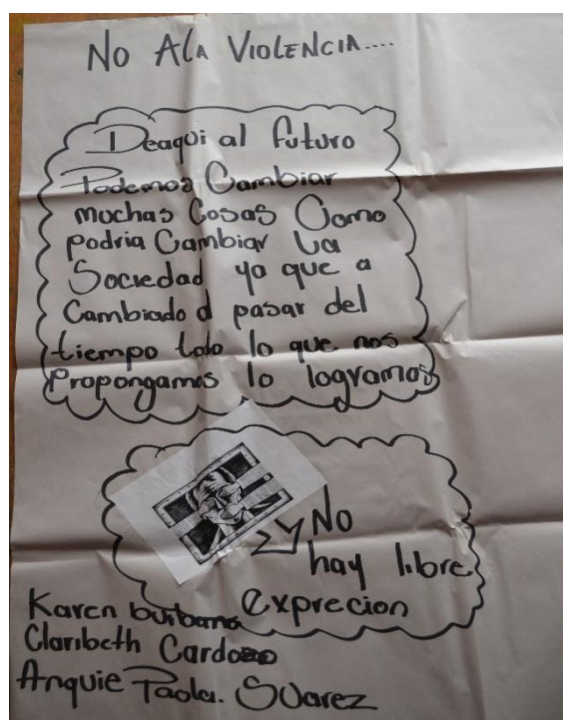 No A la Violencia....
Deaqui al futuro
Podemos Cambiar
muchas Cosas Como
podria Cambiar La
Sociedad ya que a
Cambiado al pasar del
tiempo todo lo que nos
Propongamos lo logramos
No
hay libre
exprecion
Karen burbano
Claribeth Cardozo
Anquie Paola. Suarez